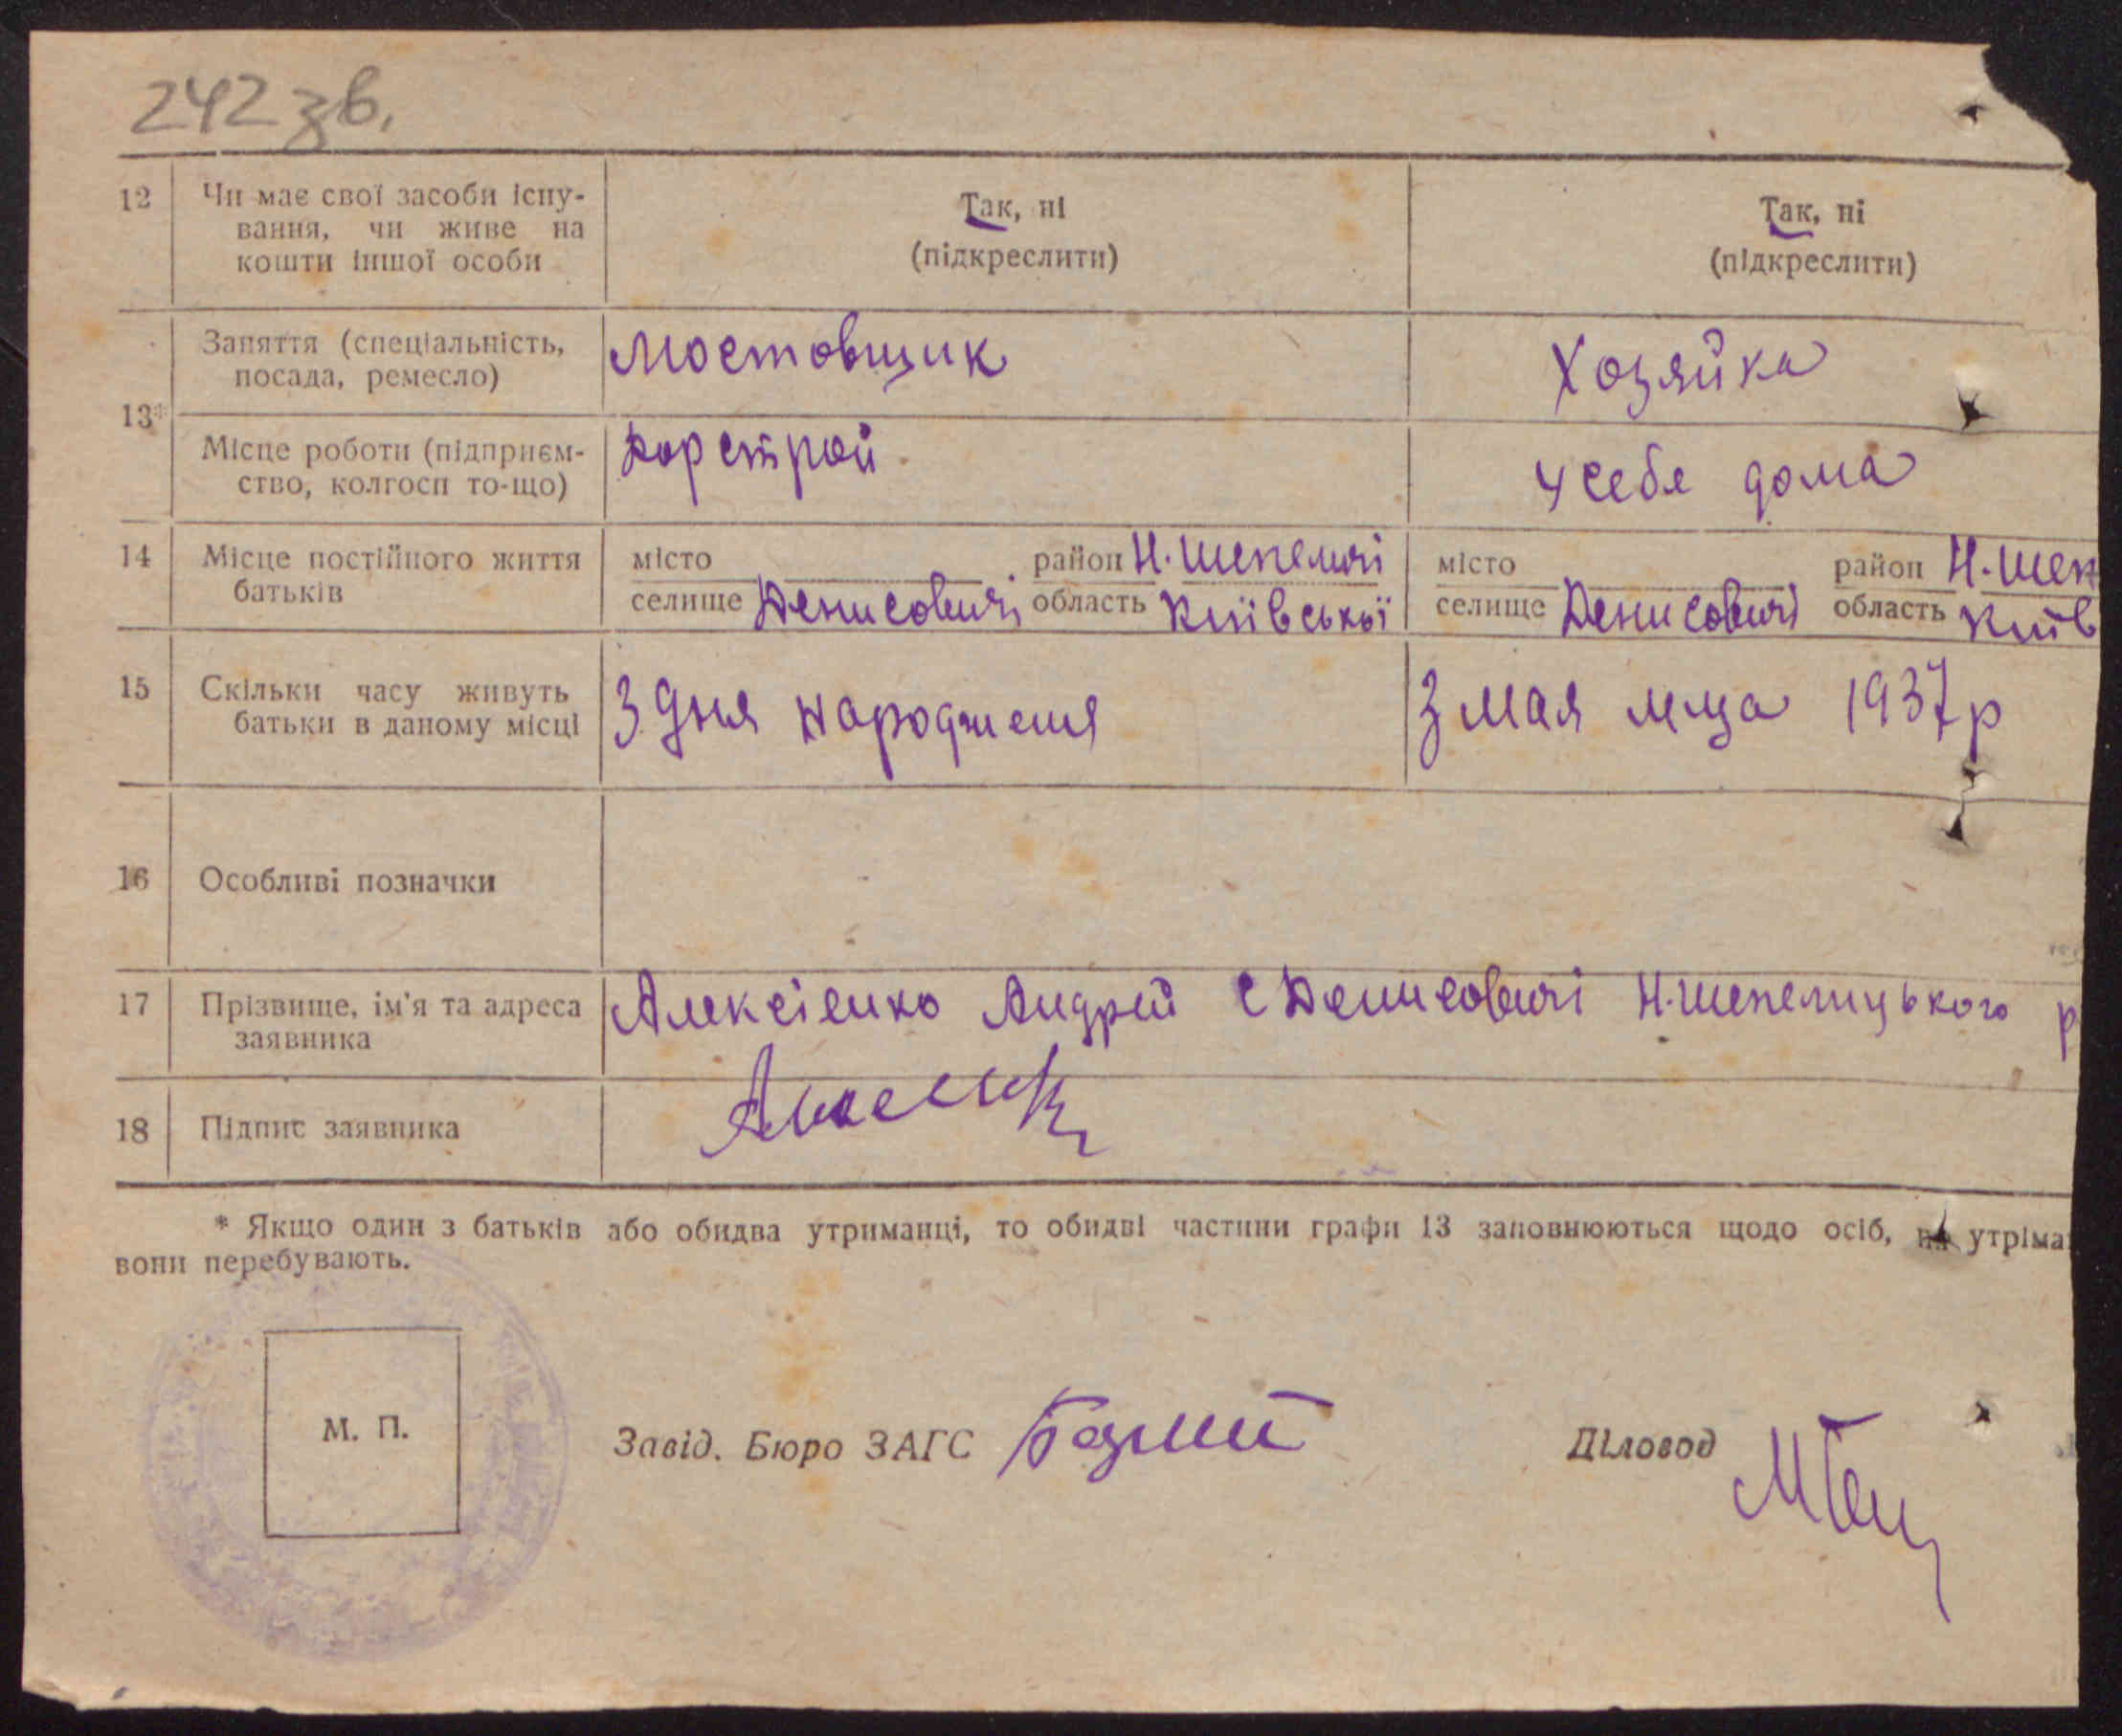 242 зв.
12 Чи має свої засоби існу- Так, ні Так, ні
вання, чи живе на (підкреслити) (підкреслити)
кошти іншої особи
13* Заняття (спеціальність, Мостовщик Хозяйка
посада, ремесло)
Місце роботи (підприєм- Дорстрой у себе дома
ство, колгосп то-що)
14 Місце постійного життя місто район Н. Шепеличі місто район Н. Шеп
батьків селище Денисовичі область Київської селище Денисовичі область Київ
15 Скільки часу живуть З дня народженя З мая м-ца 1937 р
батьки в даному місці
16 Особливі позначки
17 Прізвище, ім'я та адреса Алексієнко Андрей с Денисовичі Н. Шепелицького р
заявника
18 Підпис заявника
* Якщо один з батьків або обидва утриманці, то обидві частини графи 13 заповнюються щодо осіб, на утріма
вони перебувають.
М. П.
Завід. Бюро ЗАГС Діловод